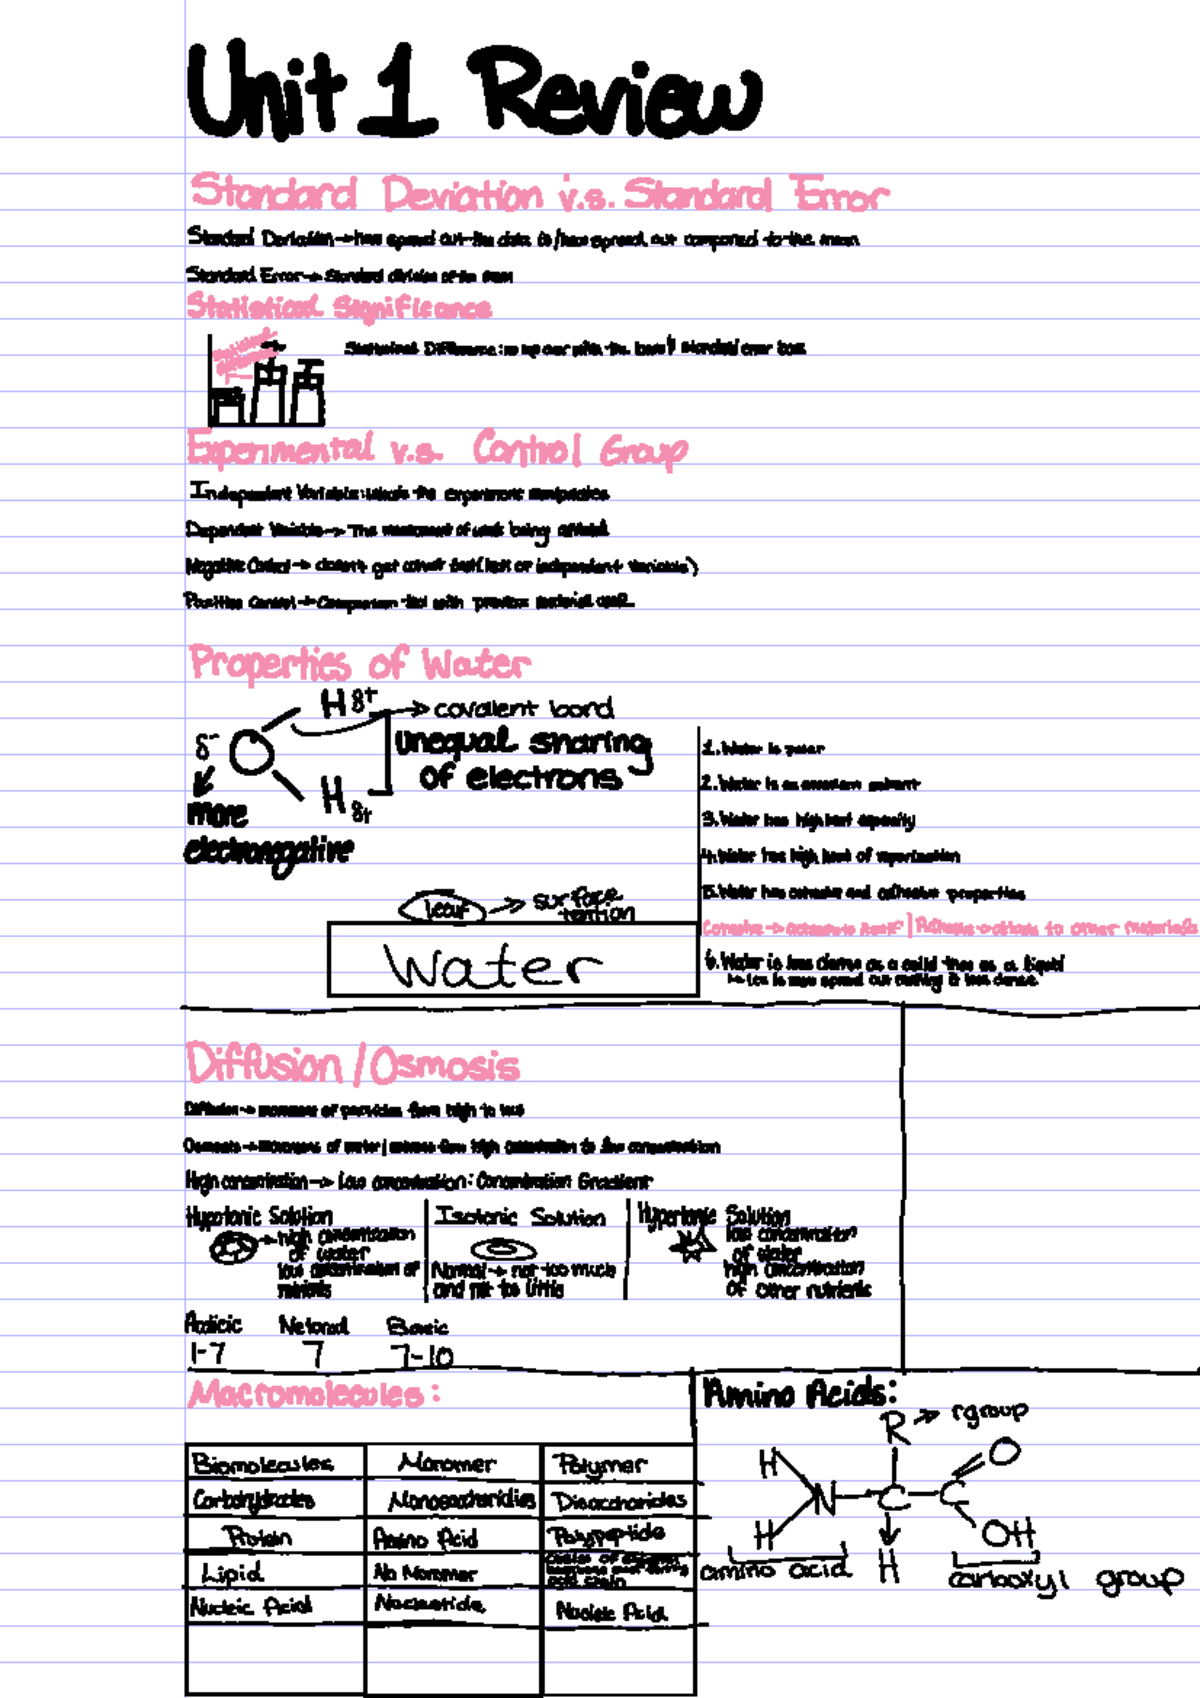 Unit 1 Review
Standard Deviation v.s. Standard Error
Standard Deviation → how spread out the data is / how spread out compared to the mean
Standard Error → Standard division of the mean
Statistical Significance
Statistical Difference: no over with the standard error bars
Experimental v.s. Control Group
Independent Variable: what's the experiment manipulates
Dependent Variable → The of being
Negative Control → doesn't get independent variable)
Positive Control → Comparison test with previous material
Properties of Water
H δ+
→ covalent bond
unequal sharing
of electrons
δ-
O
H δ+
more
electronegative
leaf → surface
tention
Water
1. Water is polar
2. Water is an excellent solvent
3. Water has high heat capacity
4. Water has high heat of vaporization
5. Water has cohesive and adhesive properties
Cohesive → itself | Adhesive → to other materials
6. Water is less dense as a solid than as a liquid
↳ Ice is more spread out making it less dense
Diffusion / Osmosis
Diffusion → movement of particles from high to low
Osmosis → movement of water from high concentration to low concentration
High concentration → low concentration: Concentration Gradient
Hypotonic Solution
→ high concentration
of water
low concentration of
nutrients
Isotonic Solution
Normal → not too much
and not too little
Hypertonic Solution
low concentration
of water
high concentration
of other nutrients
Acidic Netural Basic
1-7 7 7-10
Macromolecules:
Biomolecules Monomer Polymer
Carbohydrates Monosaccharides Disaccharides
Protein Amino Acid Polypeptide
Lipid No Monomer
Nucleic Acid Nucleotide Nucleic Acid
Amino Acids:
R → rgroup
H O
N C C
H H OH
amino acid carboxyl group